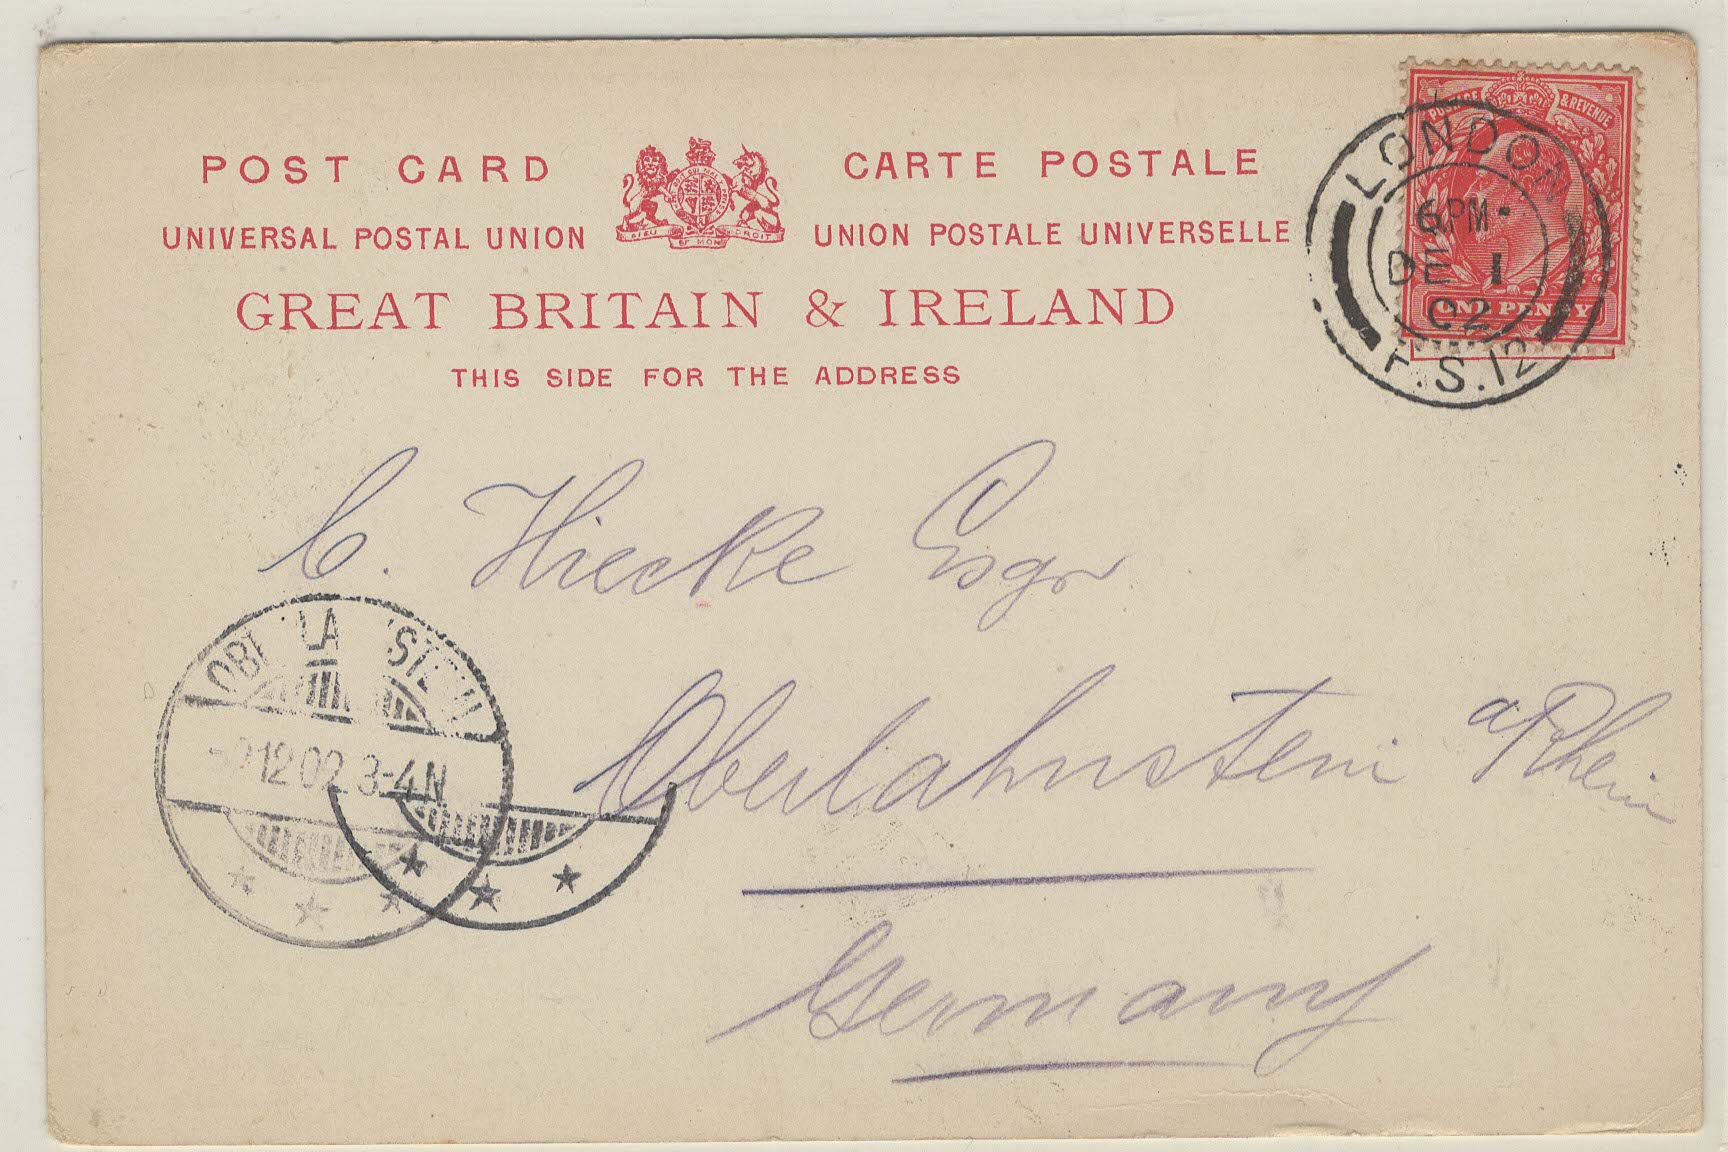 POST CARD CARTE POSTALE
UNIVERSAL POSTAL UNION UNION POSTALE UNIVERSELLE
GREAT BRITAIN & IRELAND
THIS SIDE FOR THE ADDRESS
POSTAGE & REVENUE
ONE PENNY
LONDON
6PM
DE 1
02
F.S.12
DIEU ET MON DROIT
C. Hiecke Esqr
Oberlahnstein a/Rhein
Germany
12 02 3-4 N